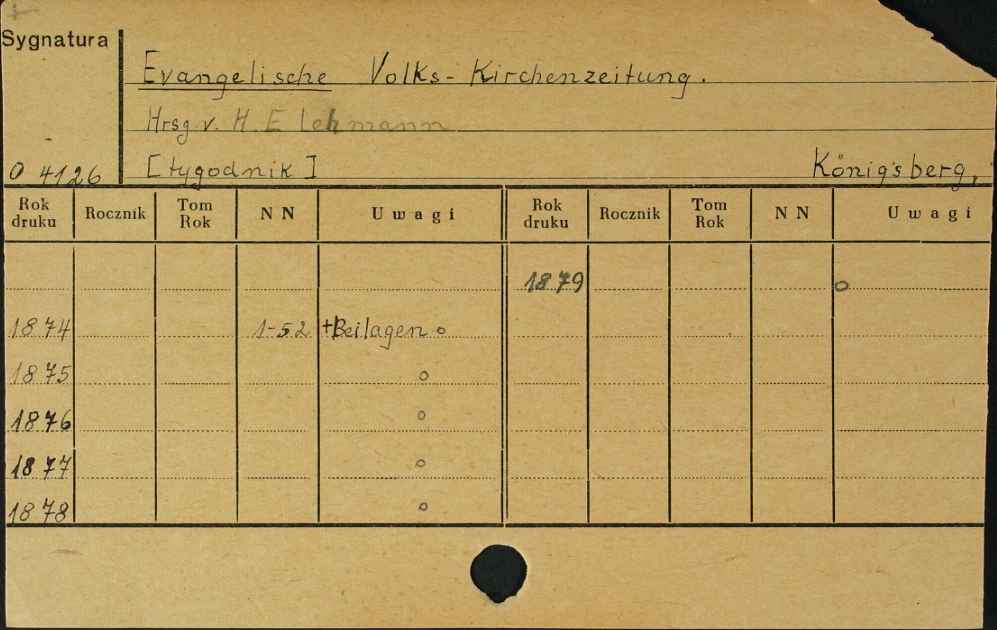 Sygnatura
Evangelische Volks-Kirchenzeitung.
Hrsg. v. H. E Lehmann
O 4126 [tygodnik] Königsberg,
Rok druku Rocznik Tom Rok NN Uwagi Rok druku Rocznik Tom Rok NN Uwagi
1879 o
1874 1-52 +Beilagen o
1875 o
1876 o
1877 o
1878 o